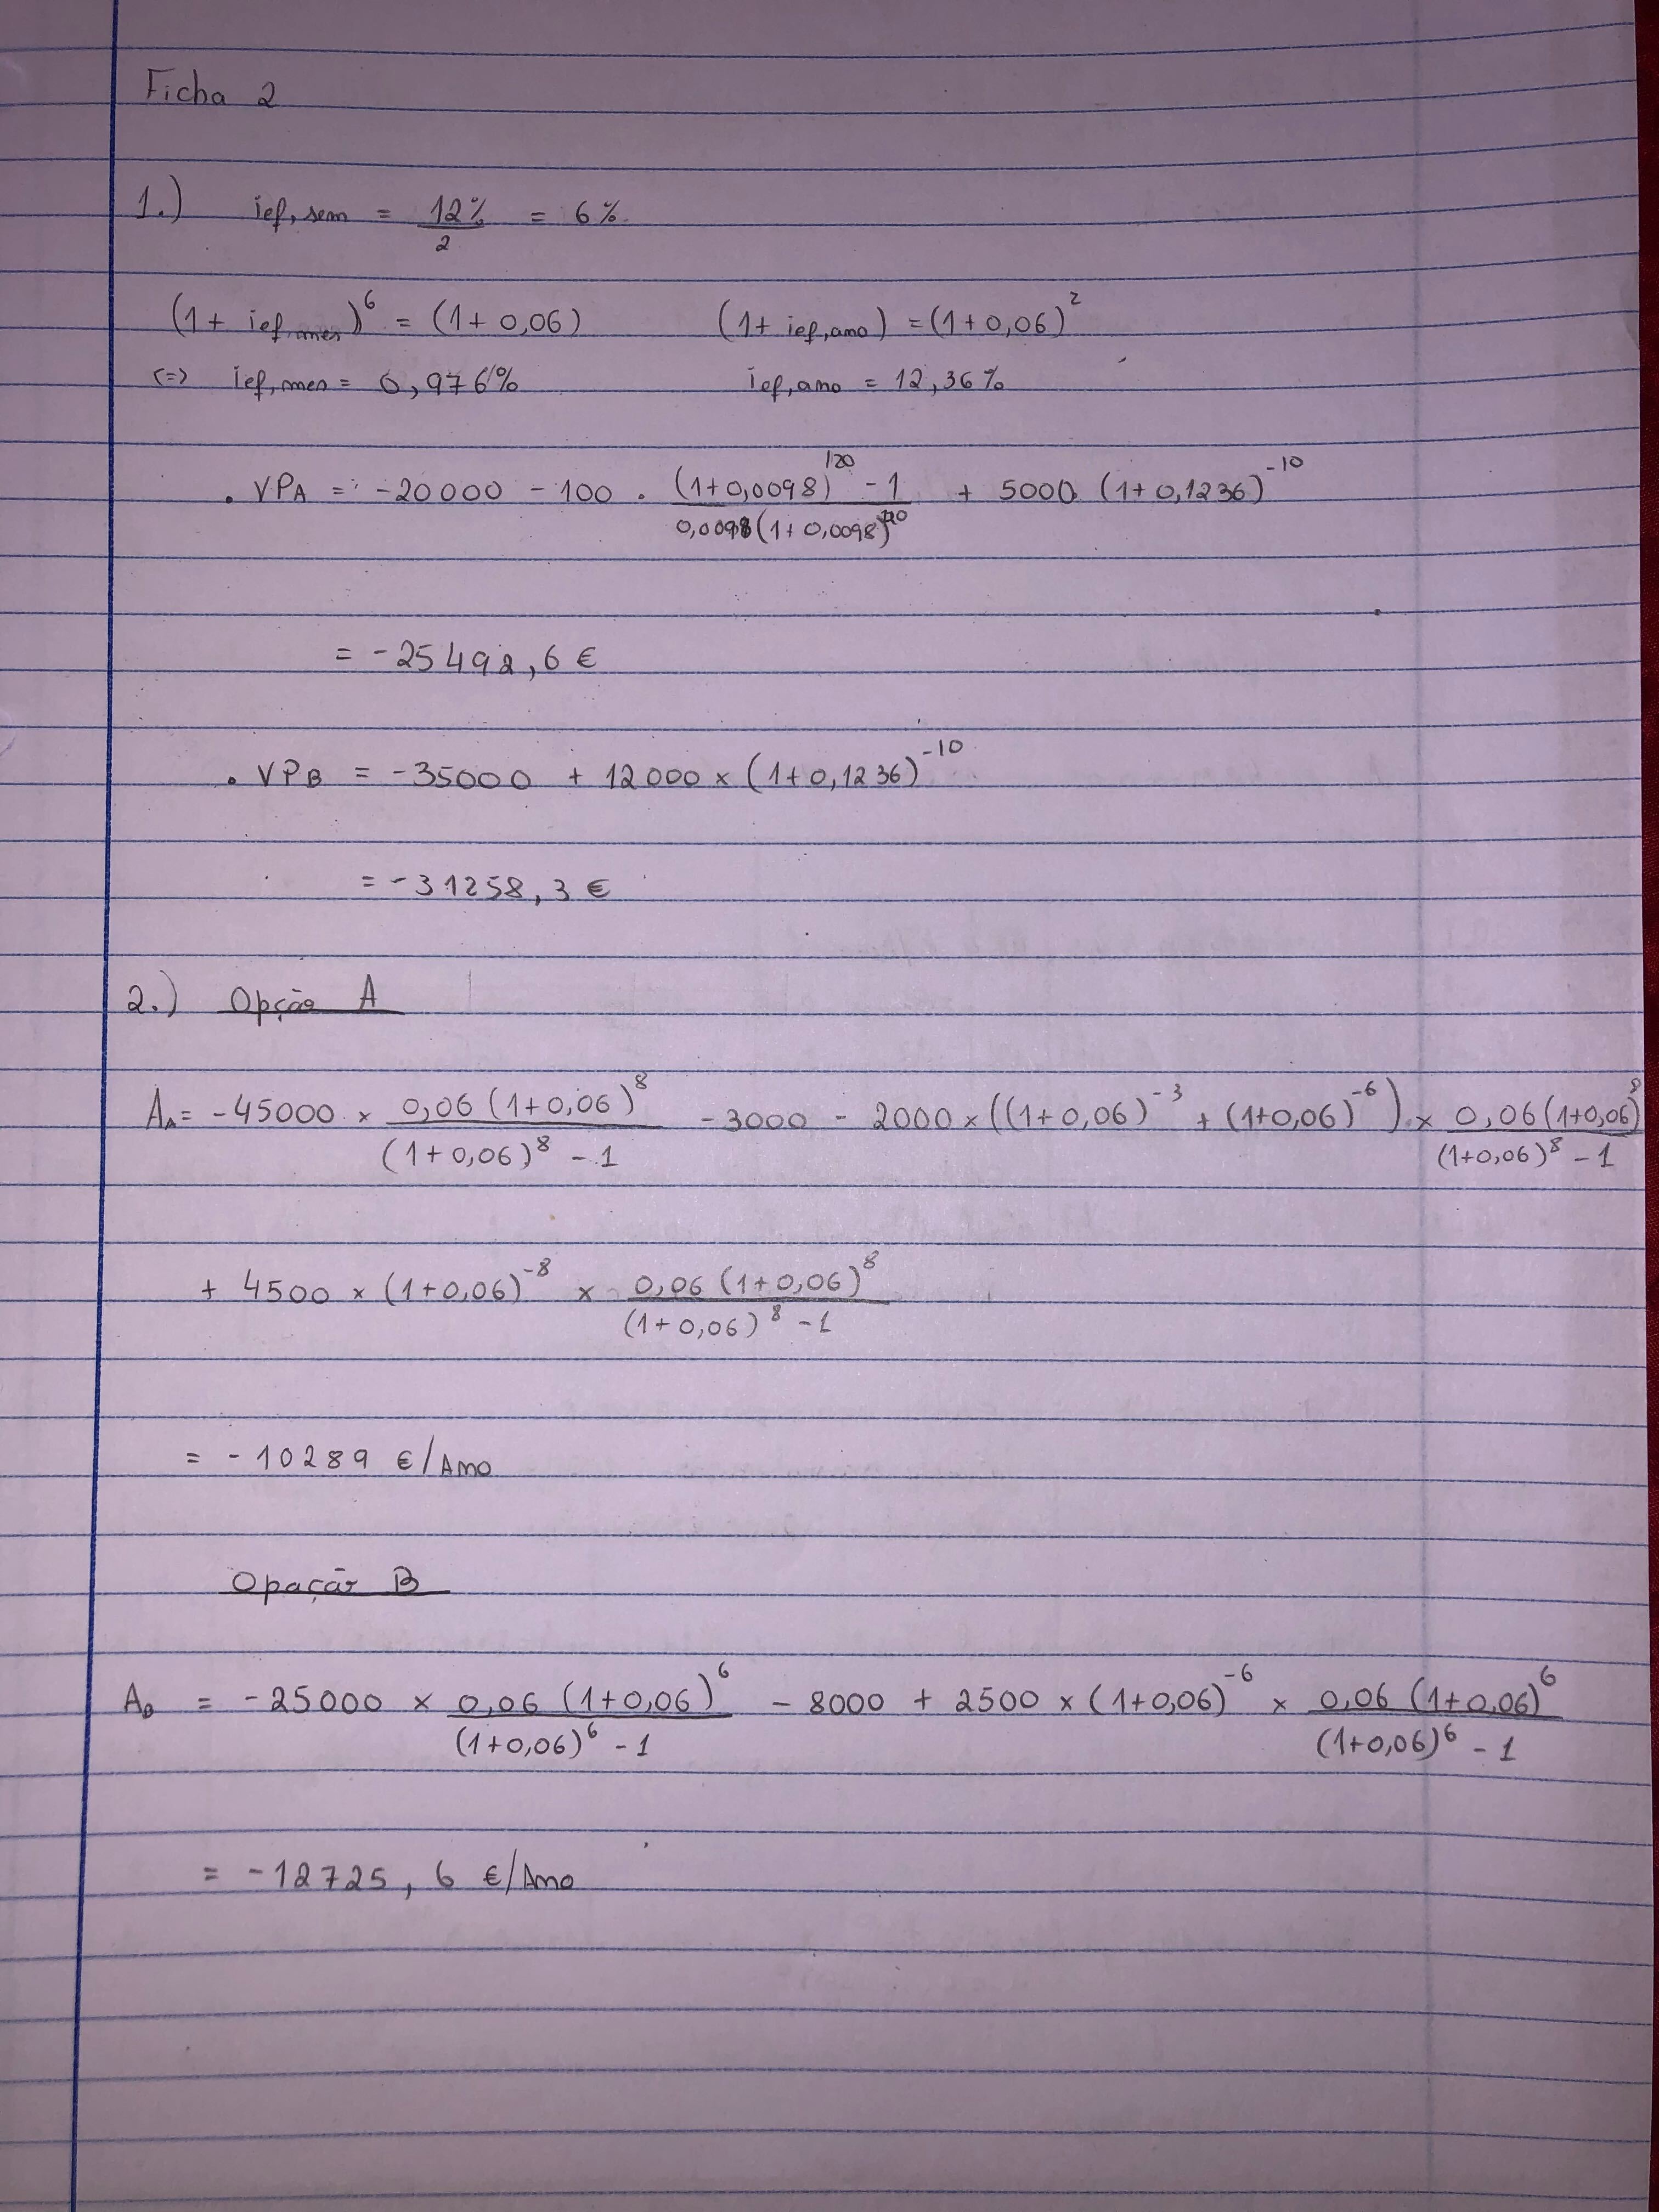 Ficha 2
1.) ief,sem = 12%/2 = 6%
(1 + ief,mes)^6 = (1 + 0,06) (1 + ief,ano) = (1 + 0,06)^2
(=) ief,mes = 0,976% ief,ano = 12,36%
. VPA = -20000 - 100 . ((1+0,0098)^120 - 1)/(0,0098(1+0,0098)^120) + 5000 (1+0,1236)^-10
= -25492,6 €
. VPB = -35000 + 12000 × (1+0,1236)^-10
= -31258,3 €
2.) Opção A
AA = -45000 × (0,06 (1+0,06)^8)/((1+0,06)^8 - 1) - 3000 - 2000 × ((1+0,06)^-3 + (1+0,06)^-6) × (0,06(1+0,06)^8)/((1+0,06)^8 - 1)
+ 4500 × (1+0,06)^-8 × (0,06 (1+0,06)^8)/((1+0,06)^8 - 1)
= -10289 €/Ano
Opação B
AB = -25000 × (0,06 (1+0,06)^6)/((1+0,06)^6 - 1) - 8000 + 2500 × (1+0,06)^-6 × (0,06 (1+0,06)^6)/((1+0,06)^6 - 1)
= -12725,6 €/Ano